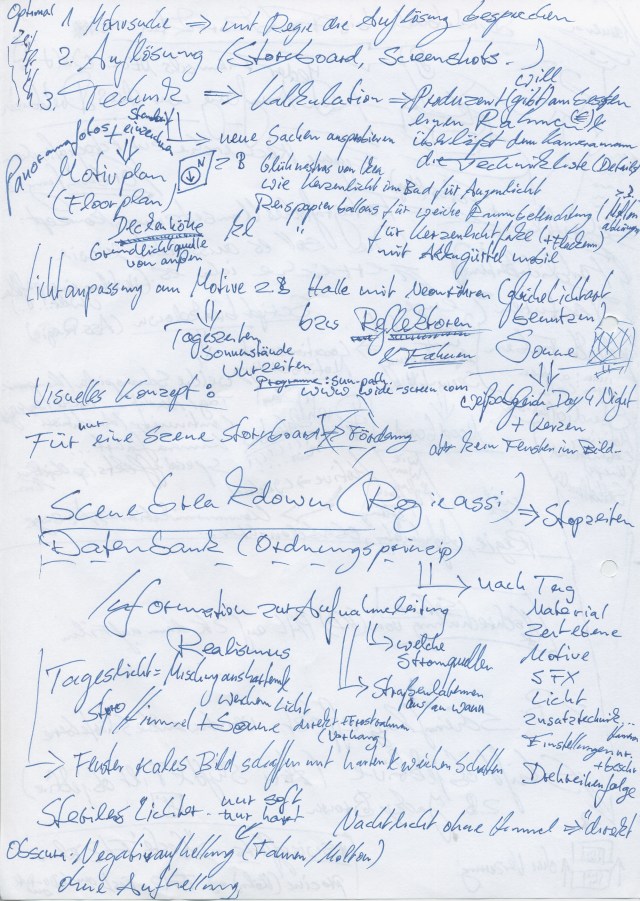 Optimal 1. Motivsuche => mit Regie die Auflösung besprechen
2. Auflösung (Storyboard, Screenshots...)
3. Technik => Kalkulation => Produzent (gibt) am besten
will
einen Rahmen €
überlässt dem Kameramann
die Technikliste (Details)
Panoramafotos einzeichnen
Motivplan
(Floorplan)
N
Deckenhöhe
Grundlichtquelle
von außen
neue Sachen ausprobieren
z B
wie Kerzenlicht im Bad für Augenlicht
Reispapierballons für weiche Raumbeleuchtung
für Kerzenlicht
mit Akkugürtel mobil
Lichtanpassung am Motive z B Halle mit Neonröhren (gleiche Lichtart
benutzen)
Tageszeiten
Sonnenstände
Uhrzeiten
bzw Reflektoren
& Fahnen
Sonne
Programme: sun-path
www wide-screen.com
weißabgleich Day 4 Night
+ Kerzen
aber kein Fenster im Bild
Visuelles Konzept:
Für nur eine Szene Storyboard => Förderung
Scene breakdown (Regieassi) => Stopzeiten
Datenbank (Ordnungsprinzip)
nach Tag
Material
Zeitebene
Motive
SFX
Licht
Zusatztechnik...
Einstellungsnr
Drehreihenfolge
Information zur Aufnahmeleitung
welche
Stromquellen
Straßenlaternen
aus/an wann
Realismus
Tageslicht = Mischung aus hartem &
weichem Licht
Himmel + Sonne direkt + Frostrahmen
(Vorhang)
Fenster reales Bild schaffen mit harten & weichen Schatten
Steriles Licht nur soft
nur hart
Nachtlicht ohne Himmel => direkt
Obscura: Negativaufhellung (Fahnen/Molton)
ohne Aufhellung